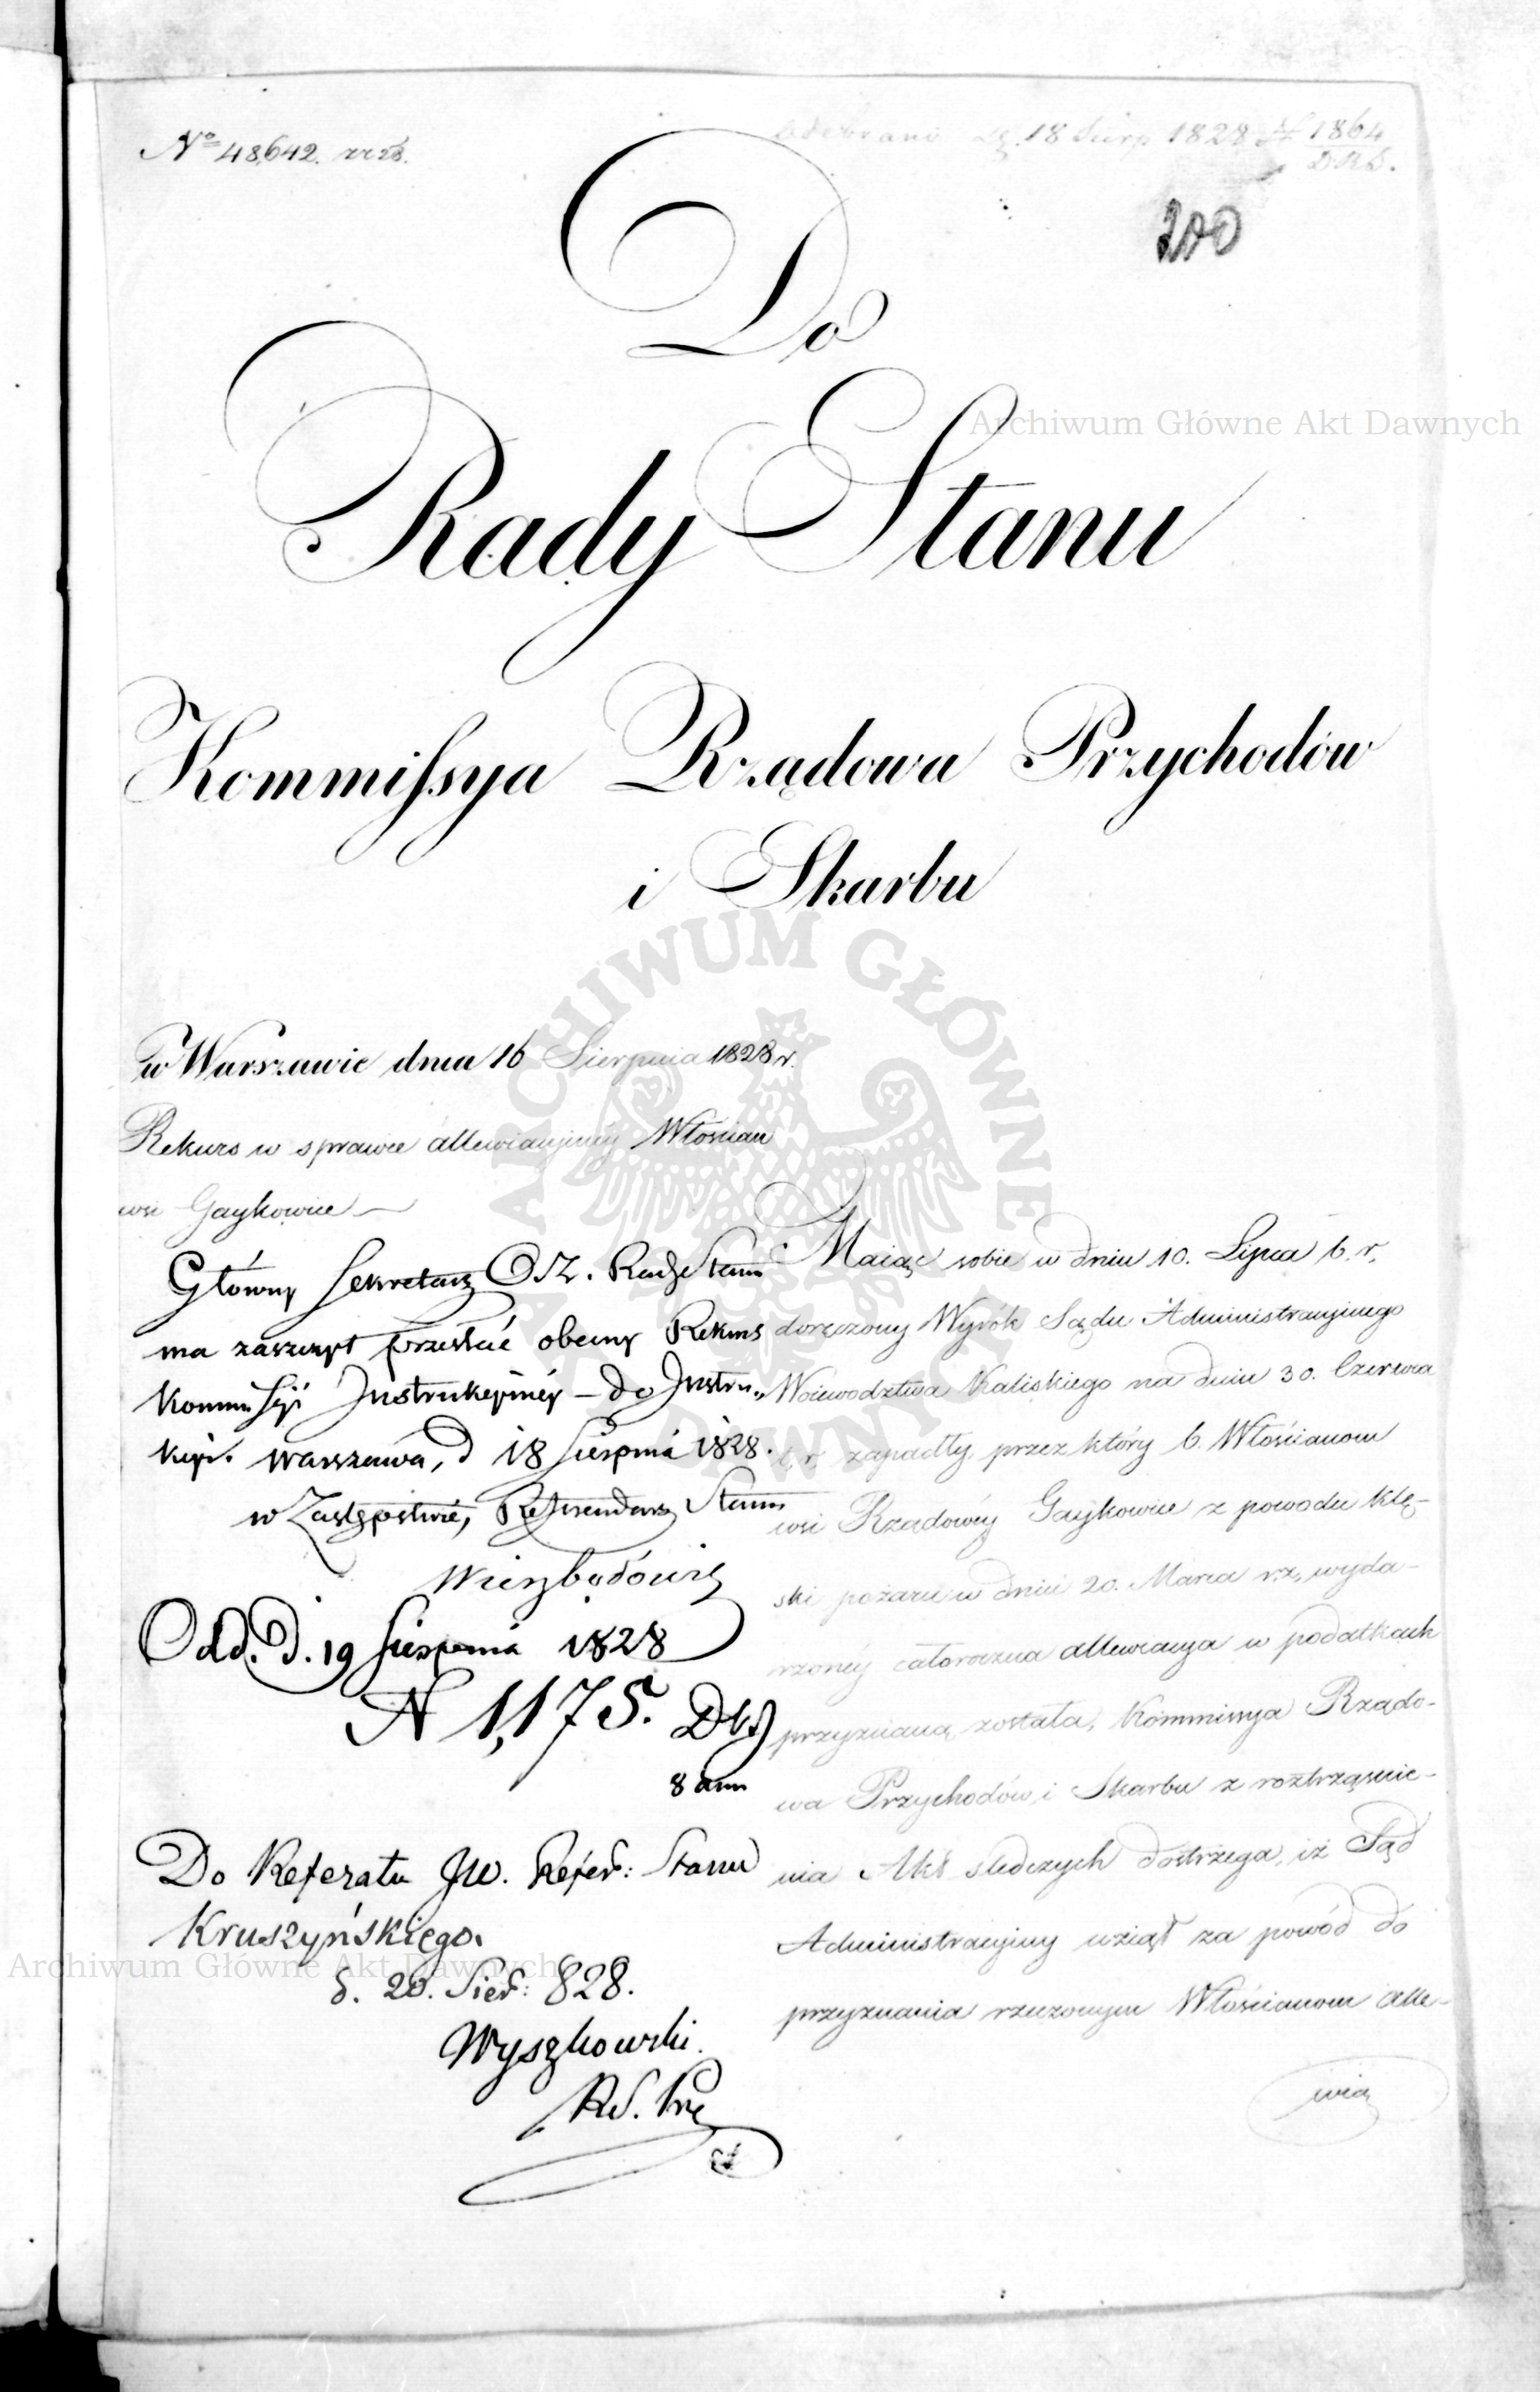 No 48,642.
Odebrano d. 18 Sierp 1828 N 1864
D.R.S.
200
Do
Rady Stanu
Kommissya Rządowa Przychodów
i Skarbu
w Warszawie dnia 16 Sierpnia 1828 r.
Rekurs w sprawie allewiacyjnéy Włościan
wsi Gaykowice
Główny Sekretarz Rady Stanu
ma zaszczyt przesłać obecny Rekurs
Kommissyi Instrukcyinéy – do Instru-
kcyi. Warszawa, d 18 Sierpnia 1828.
w Zastępstwie, Referendarz Stanu
Odd. D. 19 Sierpnia 1828
N 1,175.
Do Referatu JW. Refer: Stanu
Kruszyńskiego.
d. 20. Sier: 828.
Wyszkowski
Maiąc sobie w dniu 10. Lipca b. r.
doręczony Wyrók Sądu Administracyjnego
Woiewodztwa Kaliskiego na dniu 30. Czerwca
b. r. zapadły, przez który 6. Włościanom
wsi Rządowéy Gaykowice z powodu klę-
ski pożaru w dniu 20. Marca r. z. wyda-
rzonéy całoroczna allewiacya w podatkach
przyznaną została, Kommissya Rządo-
wa Przychodów i Skarbu z roztrząśnie-
nia Akt śledczych dostrzega, iż Sąd
Administracyjny wziął za powód do
przyznania rzeczonym Włościanom alle-
wia
Archiwum Główne Akt Dawnych
ARCHIWUM GŁÓWNE AKT DAWNYCH
Archiwum Główne Akt Dawnych